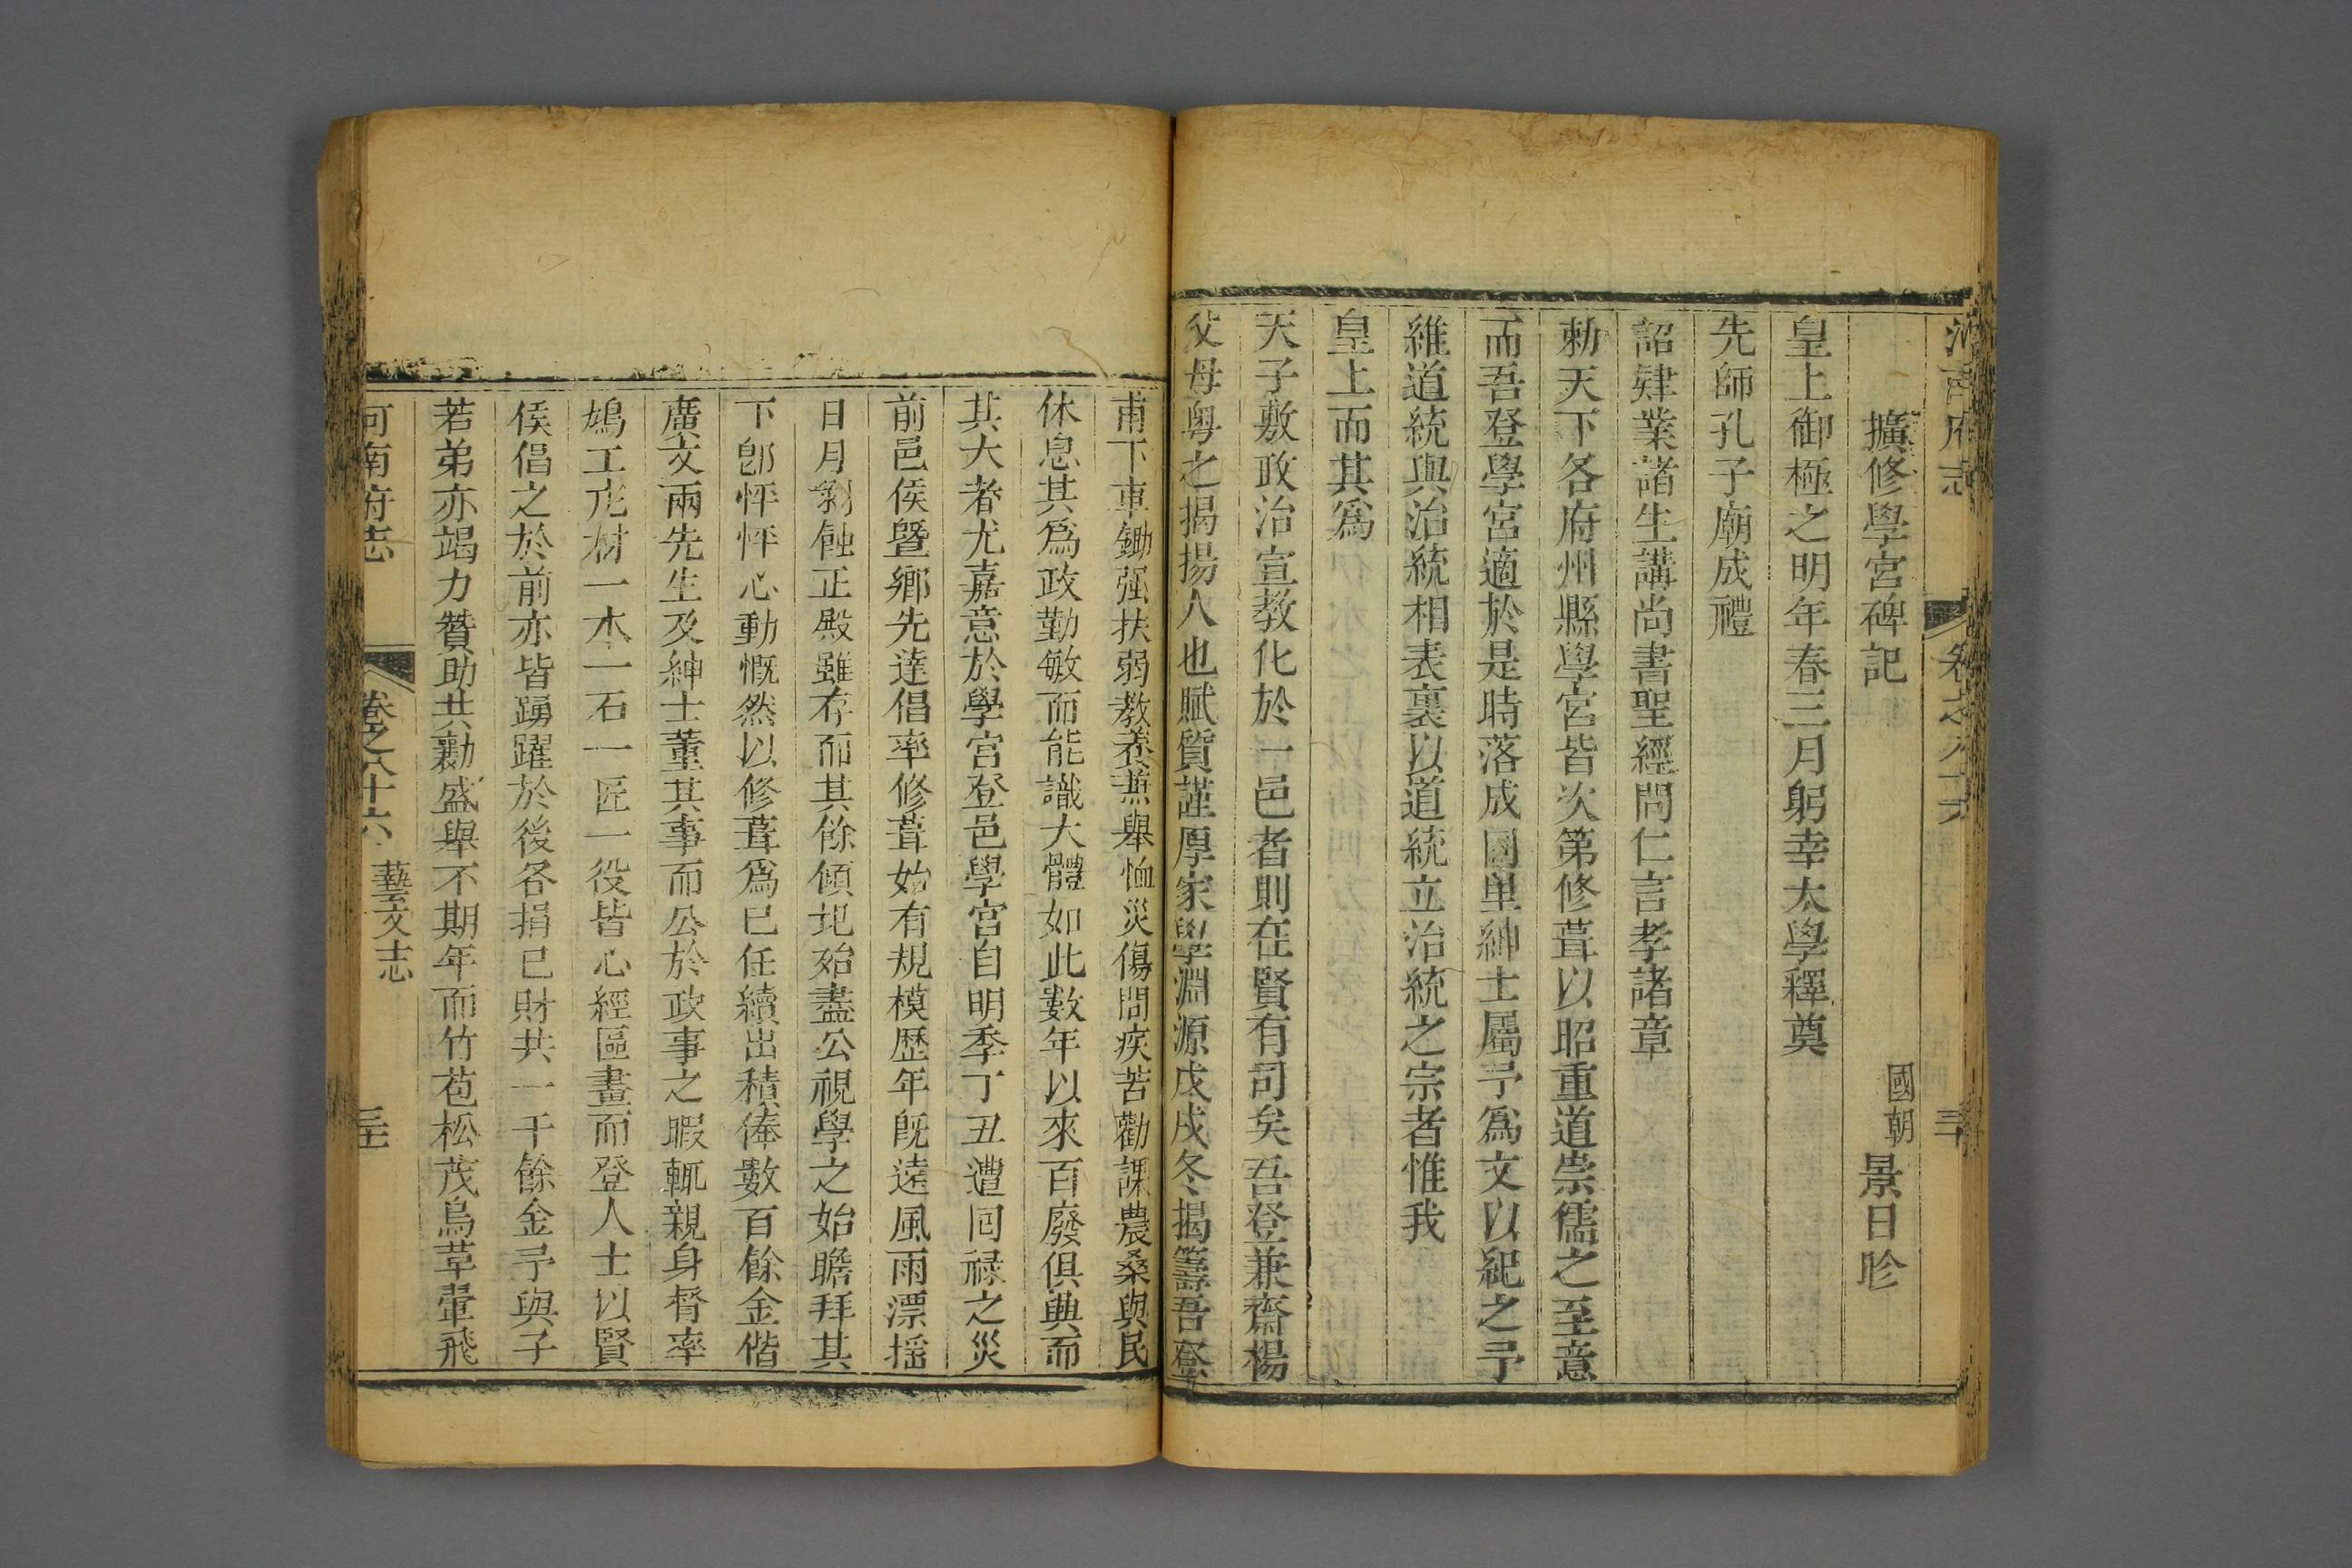 河南府志 卷之八十六 三十
擴修學宮碑記 國朝 景日昣
皇上御極之明年春三月躬幸太學釋奠
先師孔子廟成禮
詔肄業諸生講尚書聖經問仁言孝諸章
勅天下各府州縣學宮皆次第修葺以昭重道崇儒之至意
而吾登學宮適於是時落成國単紳士屬予爲文以紀之予
維道統與治統相表裏以道統立治統之宗者惟我
皇上而其爲
天子敷政治宣教化於一邑者則在賢有司矣吾登兼齋楊
父母粤之揭揚人也賦質謹厚家學淵源戊戌冬揭籌吾登
甫下車鋤强扶弱教養兼舉恤災傷問疾苦勸課農桑與民
休息其爲政勤敏而能識大體如此數年以來百廢俱興而
其大者尤嘉意於學宮登邑學宮自明季丁丑遭回祿之災
前邑侯暨鄉先達倡率修葺始有規模歷年旣遠風雨漂搖
日月剝蝕正殿雖存而其餘傾圮殆盡公視學之始瞻拜其
下卽怦怦心動慨然以修葺爲已任續出積俸數百餘金偕
廣文兩先生及紳士董其事而公於政事之暇輒親身督率
鳩工庀材一木一石一匠一役皆心經區畫而登人士以賢
侯倡之於前亦皆踴躍於後各捐已財共一千餘金予與子
若弟亦竭力贊助共勷盛舉不期年而竹苞松茂鳥革翬飛
河南府志 卷之八十六 藝文志 三十一